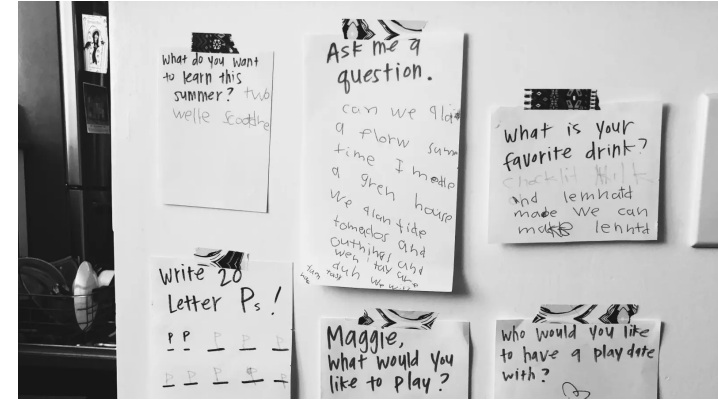 What do you want
to learn this
summer? two
welle scoothe
Ask me a
question.
can we
a florw sum
time I made
a gren house
We
tomados and
outhings and
wen tay are
duh we will
What is your
favorite drink?
choclit milk
and lemnatd
made we can
make lenntd
Write 20
Letter Ps!
P P P P P
P P P P P
Maggie,
what would you
like to play?
who would you like
to have a playdate
with?